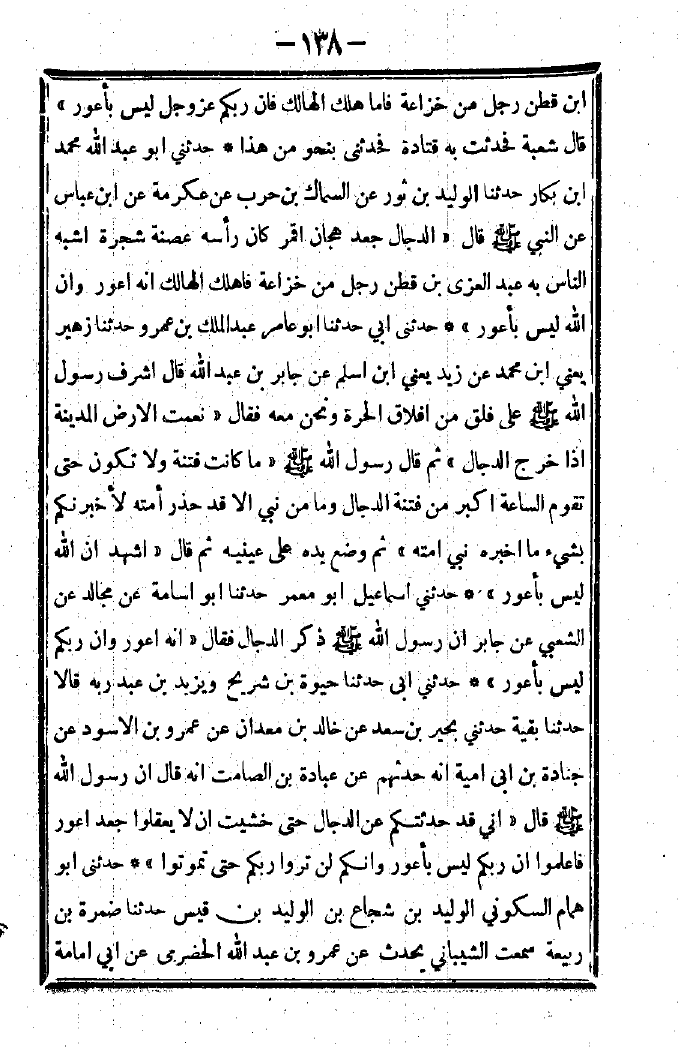 -١٣٨-
ابن قطن رجل من خزاعة فاما هلك الهالك فان ربكم عز وجل ليس بأعور »
قال شعبة فحدثت به قتادة فحدثنى بنحو من هذا * حدثني ابو عبد الله محمد
ابن بكار حدثنا الوليد بن ثور عن السماك بن حرب عن عكرمة عن ابن عباس
عن النبي ﷺ قال « الدجال جعد هجان اقمر كان رأسه غصنة شجرة اشبه
الناس به عبد العزى بن قطن رجل من خزاعة فاهلك الهالك انه اعور وان
الله ليس بأعور » * حدثنى ابي حدثنا ابو عامر عبد الملك بن عمرو حدثنا زهير
يعني ابن محمد عن زيد يعني ابن اسلم عن جابر بن عبد الله قال اشرف رسول
الله ﷺ على فلق من افلاق الحرة ونحن معه فقال « نعمت الارض المدينة
اذا خرج الدجال » ثم قال رسول الله ﷺ « ما كانت فتنة ولا تكون حتى
تقوم الساعة اكبر من فتنة الدجال وما من نبي الا قد حذر أمته لأخبرنكم
بشيء ما اخبره نبي امته » ثم وضع يده على عينيه ثم قال « اشهد ان الله
ليس بأعور » * حدثني اسماعيل ابو معمر حدثنا ابو اسامة عن مجالد عن
الشعبي عن جابر ان رسول الله ﷺ ذكر الدجال فقال « انه اعور وان ربكم
ليس بأعور » * حدثني ابى حدثنا حيوة بن شريح ويزيد بن عبد ربه قالا
حدثنا بقية حدثني بحير بن سعد عن خالد بن معدان عن عمرو بن الاسود عن
جنادة بن ابى امية انه حدثهم عن عبادة بن الصامت انه قال ان رسول الله
ﷺ قال « اني قد حدثتكم عن الدجال حتى خشيت ان لا يعقلوا جعد اعور
فاعلموا ان ربكم ليس بأعور وانكم لن تروا ربكم حتى تموتوا » * حدثنى ابو
همام السكوني الوليد بن شجاع بن الوليد بن قيس حدثنا ضمرة بن
ربيعة سمعت الشيباني يحدث عن عمرو بن عبد الله الحضرمى عن ابي امامة